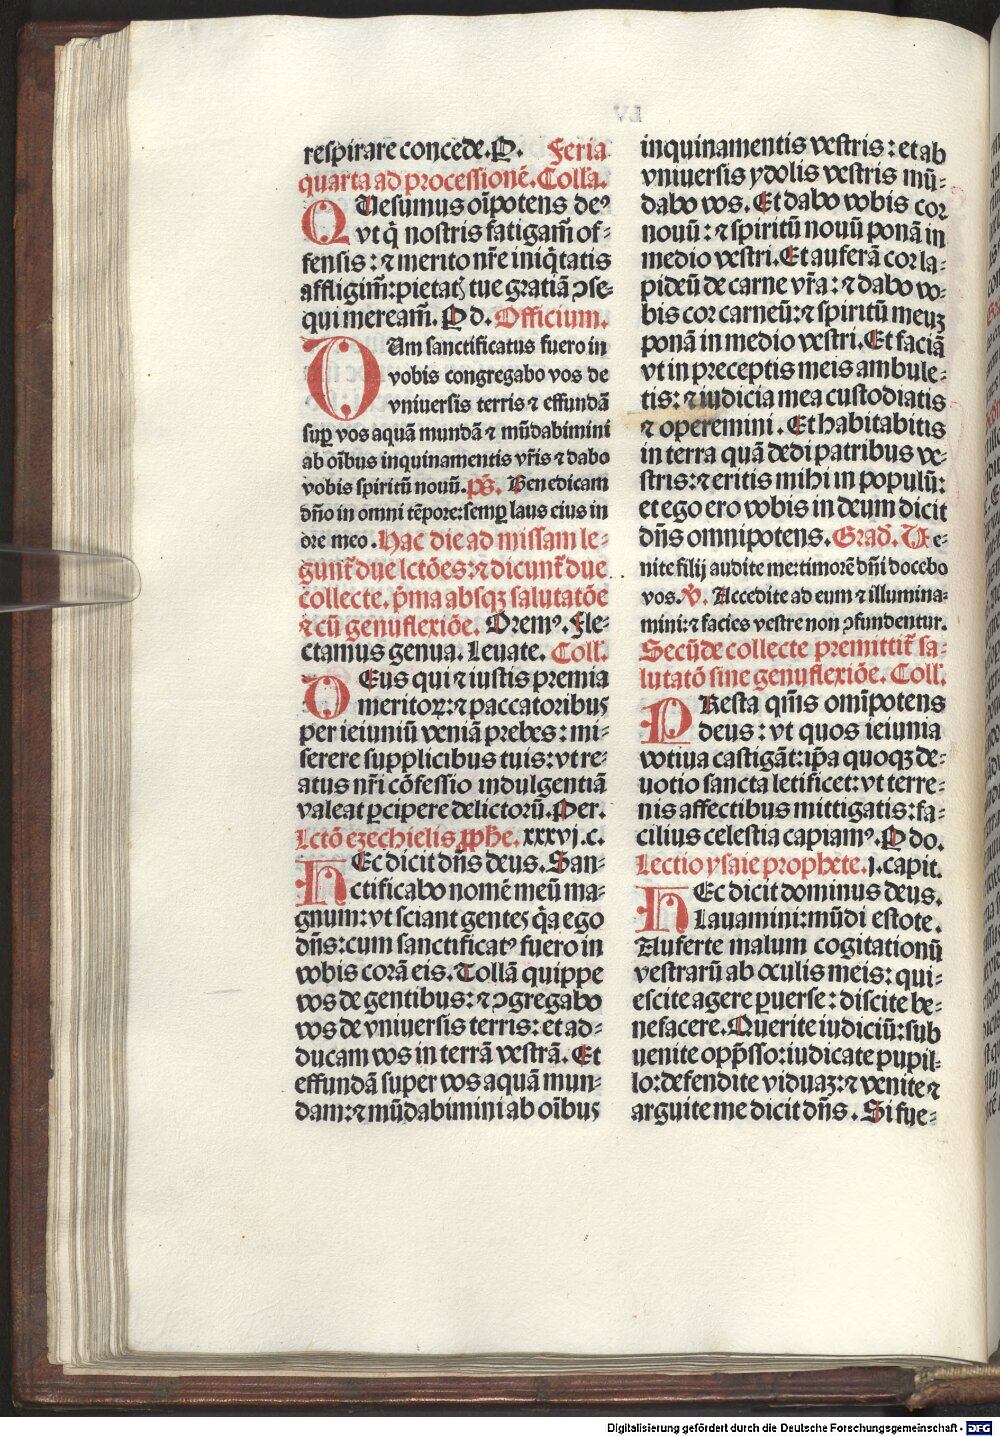 respirare concede. P. Feria
quarta ad processionē. Colla.
QUesumus oīpotens deꝰ
vt q̄ nostris fatigam̄ of⸗
fensis: ⁊ merito nr̄e iniq̄tatis
affligim̄: pietatꝭ tue gratiā ↄse⸗
qui meream̄. P d. Officium.
DUm sanctificatus fuero in
vobis congregabo vos de
vniuersis terris ⁊ effundā
suꝑ vos aquā mundā ⁊ mūdabimini
ab oībus inquinamentis vr̄is ⁊ dabo
vobis spiritū nouū. ps̄. Benedicam
dn̄o in omni tēpore: semꝑ laus eius in
ore meo. Hac die ad missam le⸗
gunt̄ due lctōes: ⁊ dicunt̄ due
collecte. p̄ma absqꝫ salutatōe
⁊ cū genuflexiōe. Oremꝰ. Fle⸗
ctamus genua. Leuate. Coll'.
DEus qui ⁊ iustis premia
meritoꝝ: ⁊ paccatoribus
per ieiuniū veniā prebes: mi⸗
serere supplicibus tuis: vt re⸗
atus nr̄i cōfessio indulgentiā
valeat ꝑcipere delictorū. Per.
Lctō ezechielis ꝓph̄e. xxxvj. c.
HEc dicit dn̄s deus. San⸗
ctificabo nomē meū ma⸗
gnum: vt sciant gentes q̄a ego
dn̄s: cum sanctificatꝰ fuero in
vobis corā eis. Tollā quippe
vos de gentibus: ⁊ ↄgregabo
vos de vniuersis terris: et ad⸗
ducam vos in terrā vestrā. Et
effundā super vos aquā mun⸗
dam: ⁊ mūdabimini ab oībus
inquinamentis vestris: et ab
vniuersis ydolis vestris mū⸗
dabo vos. Et dabo vobis cor
nouū: ⁊ spiritū nouū ponā in
medio vestri. Et auferā cor la⸗
pideū de carne vr̄a: ⁊ dabo vo⸗
bis cor carneū: ⁊ spiritū meuꝫ
ponā in medio vestri. Et faciā
vt in preceptis meis ambule⸗
tis: ⁊ iudicia mea custodiatis
⁊ operemini. Et habitabitis
in terra quā dedi patribus ve⸗
stris: ⁊ eritis mihi in populū:
et ego ero vobis in deum dicit
dn̄s omnipotens. Grad'. Ue⸗
nite filij audite me: timorē dn̄i docebo
vos. v̄. Accedite ad eum ⁊ illumina⸗
mini: ⁊ facies vestre non ↄfundentur.
Secūde collecte premittit̄ sa⸗
lutatō sine genuflexiōe. Coll'.
PResta qm̄s omīpotens
deus: vt quos ieiunia
votiua castigāt: ip̄a quoqꝫ de⸗
uotio sancta letificet: vt terre⸗
nis affectibus mittigatis: fa⸗
cilius celestia capiamꝰ. P do.
Lectio ysaie prophete. j. capit.
HEc dicit dominus deus.
Lauamini: mūdi estote.
Auferte malum cogitationū
vestrarū ab oculis meis: qui⸗
escite agere ꝑuerse: discite be⸗
nefacere. Querite iudiciū: sub
uenite opp̄sso: iudicate pupil⸗
lo: defendite viduaꝫ: ⁊ venite ⁊
arguite me dicit dn̄s. Si fue⸗
Digitalisierung gefördert durch die Deutsche Forschungsgemeinschaft - DFG